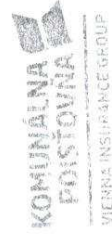 KOMUNÁLNA
POISŤOVŇA
VIENNA INSURANCE GROUP